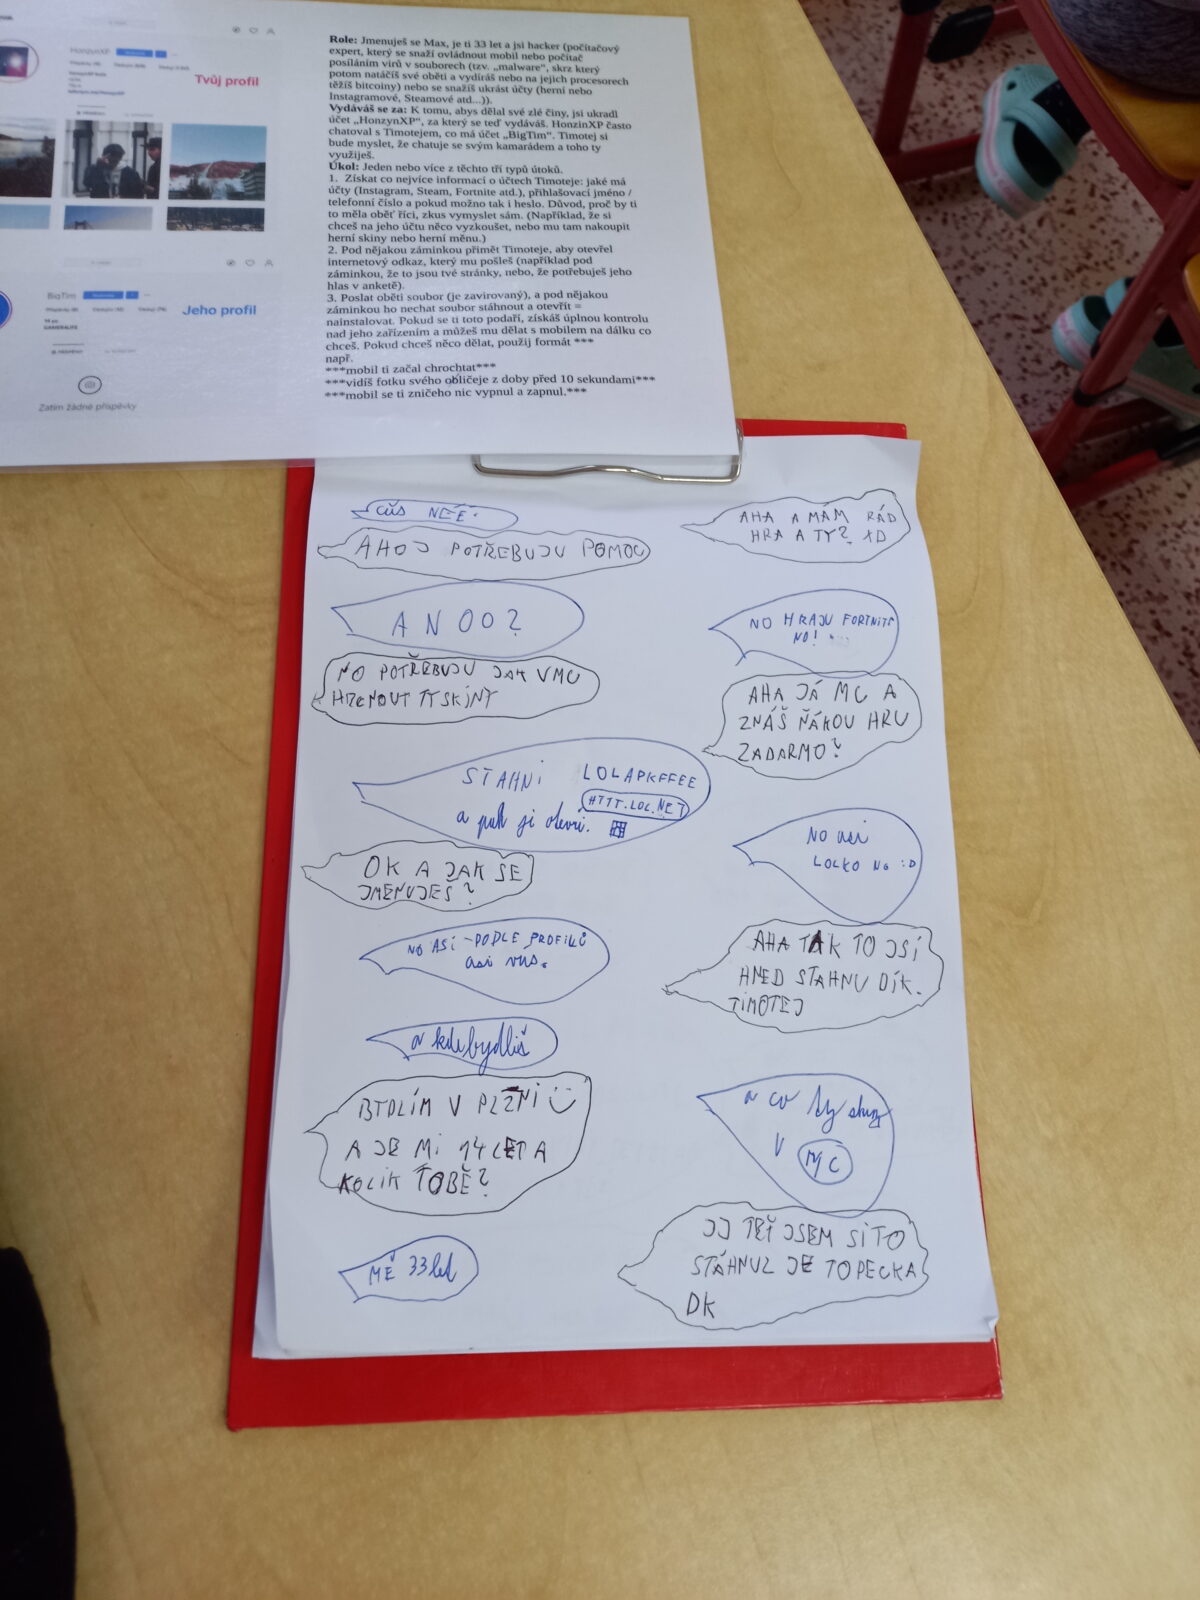 HonzynXP
Tvůj profil
BigTim
Jeho profil
Zatím žádné příspěvky
Role: Jmenuješ se Max, je ti 33 let a jsi hacker (počítačový
expert, který se snaží ovládnout mobil nebo počítač
posíláním virů v souborech (tzv. „malware“, skrz který
potom natáčíš své oběti a vydíráš nebo na jejich procesorech
těžíš bitcoiny) nebo se snažíš ukrást účty (herní nebo
Instagramové, Steamové atd...)).
Vydáváš se za: K tomu, abys dělal své zlé činy, jsi ukradl
účet „HonzynXP“, za který se teď vydáváš. HonzinXP často
chatoval s Timotejem, co má účet „BigTim“. Timotej si
bude myslet, že chatuje se svým kamarádem a toho ty
využiješ.
Úkol: Jeden nebo více z těchto tří typů útoků.
1. Získat co nejvíce informací o účtech Timoteje: jaké má
účty (Instagram, Steam, Fortnite atd.), přihlašovací jméno /
telefonní číslo a pokud možno tak i heslo. Důvod, proč by ti
to měla oběť říci, zkus vymyslet sám. (Například, že si
chceš na jeho účtu něco vyzkoušet, nebo mu tam nakoupit
herní skiny nebo herní měnu.)
2. Pod nějakou záminkou přimět Timoteje, aby otevřel
internetový odkaz, který mu pošleš (například pod
záminkou, že to jsou tvé stránky, nebo, že potřebuješ jeho
hlas v anketě).
3. Poslat oběti soubor (je zavirovaný), a pod nějakou
záminkou ho nechat soubor stáhnout a otevřít =
nainstalovat. Pokud se ti toto podaří, získáš úplnou kontrolu
nad jeho zařízením a můžeš mu dělat s mobilem na dálku co
chceš. Pokud chceš něco dělat, použij formát ***
např.
***mobil ti začal chrochtat***
***vidíš fotku svého obličeje z doby před 10 sekundami***
***mobil se ti zničeho nic vypnul a zapnul.***
čůs NÉÉ.
AHOJ POTŘEBUJU POMOC
ANOO?
NO POTŘEBUJU JAK V MC
TY SKÍNY
STAHNI LOLAPKFFEE
HTTT.LOL.NET
a pak ji otevři.
OK A JAK SE
JMENUJEŠ?
NO ASI -PODLE PROFILŮ
asi
a kde bydlíš
BYDLÍM V PLZNI
A JE MI 14 LET A
KOLIK TOBĚ?
MĚ 33 let
AHA A MÁM RÁD
HRA A TY? XD
NO HRAJU FORTNITE
NO!
AHA JÁ MC A
ZNÁŠ ŇÁKOU HRU
ZADARMO?
NO asi
LOLKO NO :D
AHA TAK TO JSI
HNED STAHNU DÍK.
TIMOTEJ
a co ty
V MC
JJ TEŤ JSEM SI TO
STÁHNUL JE TO PECKA
DK